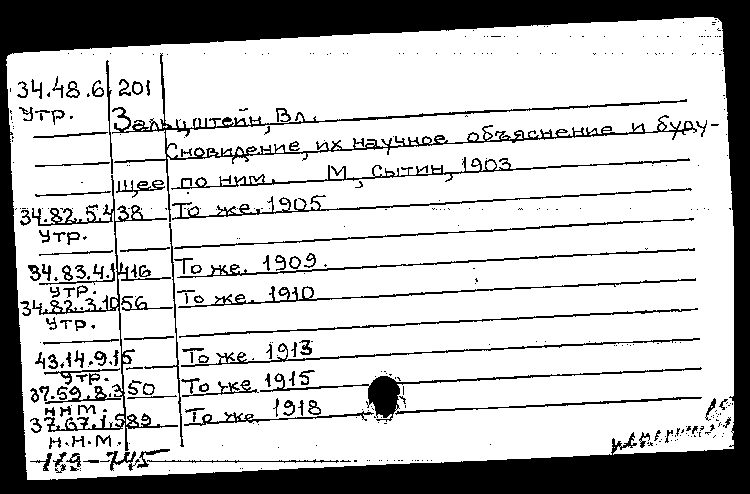 34.48.6.201
Утр. Зальцштейн, Вл.
Сновидение, их научное объяснение и буду-
щее по ним. М, Сытин, 1903
34.82.5.438 То же, 1905
Утр.
34.83.4.1416 То же. 1909.
Утр.
34.82.3.1056 То же. 1910
Утр.
43.14.9.15 То же. 1913
Утр.
37.59.8.350 То же 1915
ннм.
37.67.1.589. То же 1918
н.н.м.
169-745